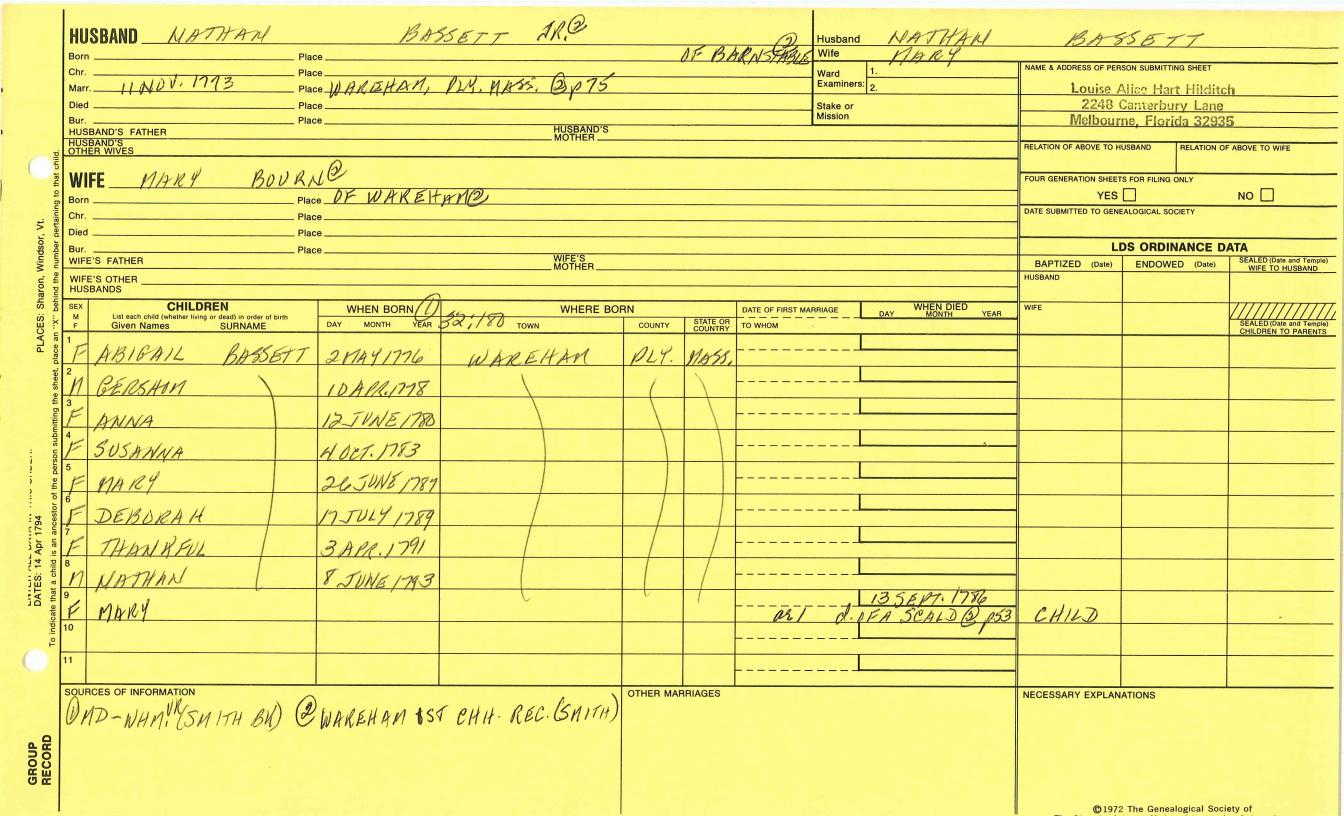 HUSBAND NATHAN BASSETT JR. ②
Born Place OF BARNSTABLE ②
Chr. Place
Marr. 11 NOV. 1773 Place WAREHAM, PLY. MASS. ② p75
Died Place
Bur. Place
HUSBAND'S FATHER HUSBAND'S MOTHER
HUSBAND'S OTHER WIVES
Husband NATHAN BASSETT
Wife MARY
Ward Examiners: 1.
2.
Stake or Mission
NAME & ADDRESS OF PERSON SUBMITTING SHEET
Louise Alice Hart Hilditch
2248 Canterbury Lane
Melbourne, Florida 32935
RELATION OF ABOVE TO HUSBAND RELATION OF ABOVE TO WIFE
FOUR GENERATION SHEETS FOR FILING ONLY
YES NO
DATE SUBMITTED TO GENEALOGICAL SOCIETY
WIFE MARY BOURN ②
Born Place OF WAREHAM ②
Chr. Place
Died Place
Bur. Place
WIFE'S FATHER WIFE'S MOTHER
WIFE'S OTHER HUSBANDS
LDS ORDINANCE DATA
BAPTIZED (Date) ENDOWED (Date) SEALED (Date and Temple) WIFE TO HUSBAND
HUSBAND
WIFE
SEALED (Date and Temple) CHILDREN TO PARENTS
SEX M F CHILDREN WHEN BORN ① 32;180 WHERE BORN DATE OF FIRST MARRIAGE WHEN DIED
List each child (whether living or dead) in order of birth
Given Names SURNAME DAY MONTH YEAR TOWN COUNTY STATE OR COUNTRY TO WHOM DAY MONTH YEAR
1 F ABIGAIL BASSETT 2 MAY 1776 WAREHAM PLY. MASS.
2 M GERSHOM 10 APR. 1778
3 F ANNA 12 JUNE 1780
4 F SUSANNA 4 OCT. 1783
5 F MARY 26 JUNE 1787
6 F DEBORAH 17 JULY 1789
7 F THANKFUL 3 APR. 1791
8 M NATHAN 8 JUNE 1793
9 F MARY 13 SEPT. 1786
d. OF A SCALD ② p53 CHILD
10
11
SOURCES OF INFORMATION
① MD-WHM. VR (SMITH BK) ② WAREHAM 1ST CHH. REC. (SMITH)
OTHER MARRIAGES
NECESSARY EXPLANATIONS
©1972 The Genealogical Society of
PLACES: Sharon, Windsor, Vt.
DATES: 14 Apr 1794
To indicate that a child is an ancestor of the person submitting the sheet, place an "X" behind the number pertaining to that child.
GROUP RECORD